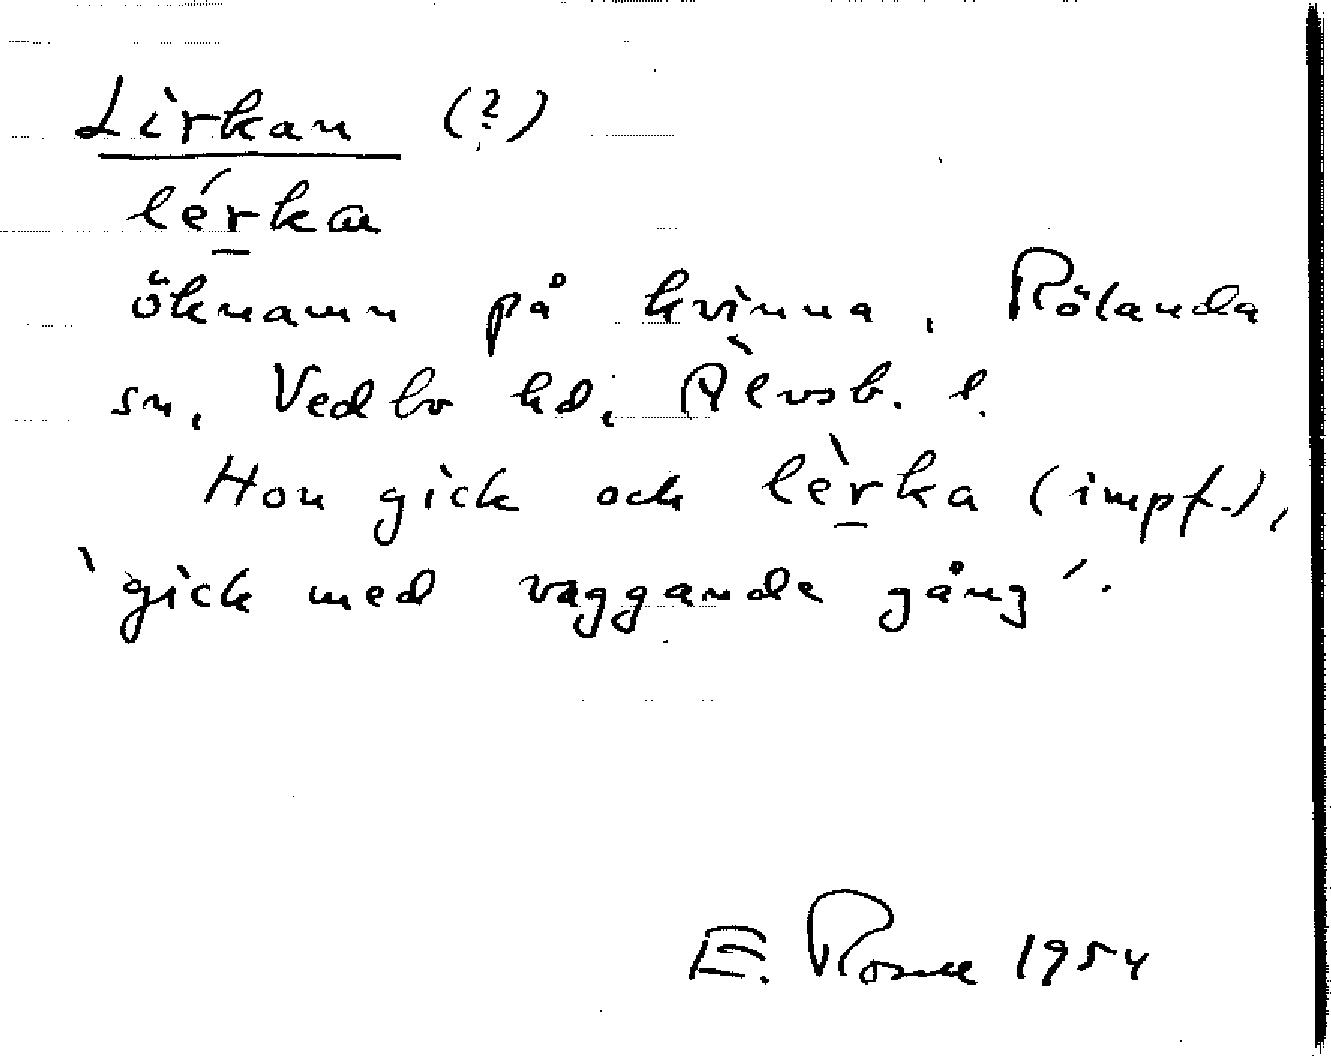 Lirkan (?)
lérka
öknamn på kvinna, Rölanda
sn, Vedbo hd, Älvsb. l.
Hon gick och lèrka (impf.),
`gick med vaggande gång´.
E. 1954